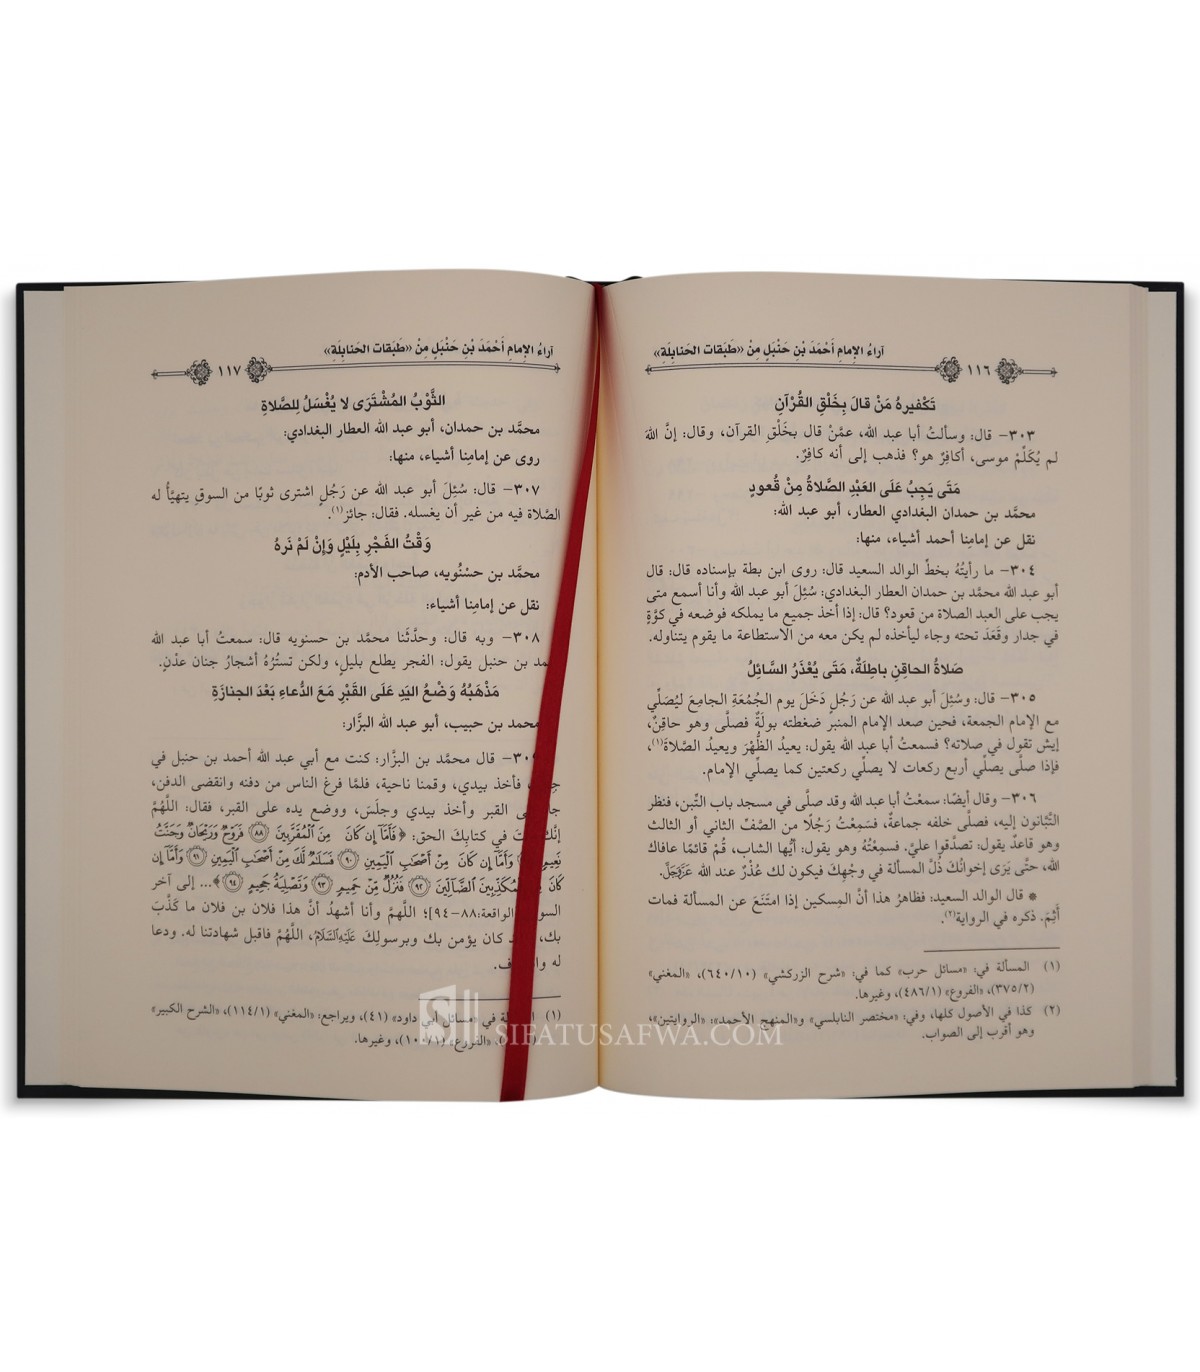 آراءُ الإمامِ أَحْمَدَ بْنِ حَنْبَلٍ مِنْ «طَبَقات الحَنابِلَةِ»
١١٦
تَكْفيرهُ مَنْ قالَ بِخَلْقِ القُرْآنِ
٣٠٣- قال: وسألتُ أبا عبد الله، عمَّنْ قال بخَلْقِ القرآن، وقال: إنَّ اللهَ
لم يُكَلِّمْ موسى، أكافِرٌ هو؟ فذهب إلى أنه كافِرٌ.
مَتَى يَجِبُ عَلَى العَبْدِ الصَّلاةُ مِنْ قُعودٍ
محمَّد بن حمدان البغدادي العطار، أبو عبد الله:
نقل عن إمامِنا أحمد أشياء، منها:
٣٠٤- ما رأيتُهُ بخطِّ الوالد السعيد قال: روى ابن بطة بإسناده قال: قال
أبو عبد الله محمَّد بن حمدان العطار البغدادي: سُئِلَ أبو عبد الله وأنا أسمع متى
يجب على العبد الصلاة من قعود؟ قال: إذا أخذ جميع ما يملكه فوضعه في كوَّةٍ
في جدار وقَعَدَ تحته وجاء ليأخذه لم يكن معه من الاستطاعة ما يقوم يتناوله.
صَلاةُ الحاقِنِ باطِلَةٌ، مَتَى يُعْذَرُ السَّائِلُ
٣٠٥- قال: وسُئِلَ أبو عبد الله عن رَجُلٍ دَخَلَ يوم الجُمُعَةِ الجامِعَ ليُصَلِّي
مع الإمام الجمعة، فحين صعد الإمام المنبر ضغطته بولَةٌ فصلَّى وهو حاقِنٌ،
إيش تقول في صلاته؟ فسمعتُ أبا عبد الله يقول: يعيدُ الظُّهْرَ ويعيدُ الصَّلاةَ(١)،
فإذا صلَّى يصلِّي أربع ركعات لا يصلِّي ركعتين كما يصلِّي الإمام.
٣٠٦- وقال أيضًا: سمعْتُ أبا عبد الله وقد صلَّى في مسجد باب التِّبن، فنظر
التَّبَّانون إليه، فصلَّى خلفه جماعةٌ، فسَمِعْتُ رَجُلًا من الصَّفِّ الثاني أو الثالث
وهو قاعدٌ يقول: تصدَّقوا عليَّ. فسمِعْتُهُ وهو يقول: أيُّها الشاب، قُمْ قائمًا عافاك
الله، حتَّى يَرَى إخوانُكَ ذُلَّ المسألة في وجْهِكَ فيكون لك عُذْرٌ عند الله عَزَّوَجَلَّ.
* قال الوالد السعيد: فظاهرُ هذا أنَّ المِسكين إذا امتَنَعَ عن المسألة فمات
أَثِمَ. ذكره في الرواية(٢).
(١) المسألة في: «مسائل حرب» كما في: «شرح الزركشي» (٦٤٠/١٠)، «المغني»
(٣٧٥/٢)، «الفروع» (٤٨٦/١)، وغيرها.
(٢) كذا في الأصول كلها، وفي: «مختصر النابلسي» و«المنهج الأحمد»: «الروايتين»،
وهو أقرب إلى الصواب.
آراءُ الإمامِ أَحْمَدَ بْنِ حَنْبَلٍ مِنْ «طَبَقات الحَنابِلَةِ»
١١٧
الثَّوْبُ المُشْتَرَى لا يُغْسَلُ لِلصَّلاةِ
محمَّد بن حمدان، أبو عبد الله العطار البغدادي:
روى عن إمامِنا أشياء، منها:
٣٠٧- قال: سُئِلَ أبو عبد الله عن رَجُلٍ اشترى ثوبًا من السوقِ يتهيَّأُ له
الصَّلاة فيه من غير أن يغسله. فقال: جائز(١).
وَقْتُ الفَجْرِ بِلَيْلٍ وَإنْ لَمْ نَرهُ
محمَّد بن حسْنُويه، صاحب الأدم:
نقل عن إمامِنا أشياءَ:
٣٠٨- وبه قال: وحدَّثَنا محمَّد بن حسنويه قال: سمعتُ أبا عبد الله
بن حنبل يقول: الفجر يطلع بليلٍ، ولكن تستُرُهُ أشجارُ جنان عدْنٍ.
مَذْهَبُهُ وَضْعُ اليَدِ عَلَى القَبْرِ مَعَ الدُّعاءِ بَعْدَ الجنازَةِ
محمد بن حبيب، أبو عبد الله البزَّار:
قال محمد بن البزَّار: كنت مع أبي عبد الله أحمد بن حنبل في
فأخذ بيدي، وقمنا ناحية، فلمَّا فرغ الناس من دفنه وانقضى الدفن،
القبر وأخذ بيدي وجلَسَ، ووضع يده على القبر، فقال: اللَّهُمَّ
في كتابِكَ الحق: ﴿فَأَمَّا إِن كَانَ مِنَ الْمُقَرَّبِينَ ٨٨ فَرَوْحٌ وَرَيْحَانٌ وَجَنَّتُ
نَعِيمٍ وَأَمَّا إِن كَانَ مِنْ أَصْحَابِ الْيَمِينِ ٩٠ فَسَلَامٌ لَّكَ مِنْ أَصْحَابِ الْيَمِينِ ٩١ وَأَمَّا إِن
كَانَ الْمُكَذِّبِينَ الضَّالِّينَ ٩٢ فَنُزُلٌ مِّنْ حَمِيمٍ ٩٣ وَتَصْلِيَةُ جَحِيمٍ ٩٤﴾... إلى آخر
الواقعة: ٨٨-٩٤]؛ اللَّهمَّ وأنا أشهدُ أنَّ هذا فلان بن فلان ما كَذَّبَ
بك، كان يؤمن بك وبرسولِكَ عَلَيْهِ السَّلَامُ، اللَّهُمَّ فاقبل شهادتنا له. ودعا
له
(١) في «مسائل أبي داود» (٤١)، ويراجع: «المغني» (١١٤/١)، «الشرح الكبير»
«الفروع» وغيرها.
SIFATUSAFWA.COM